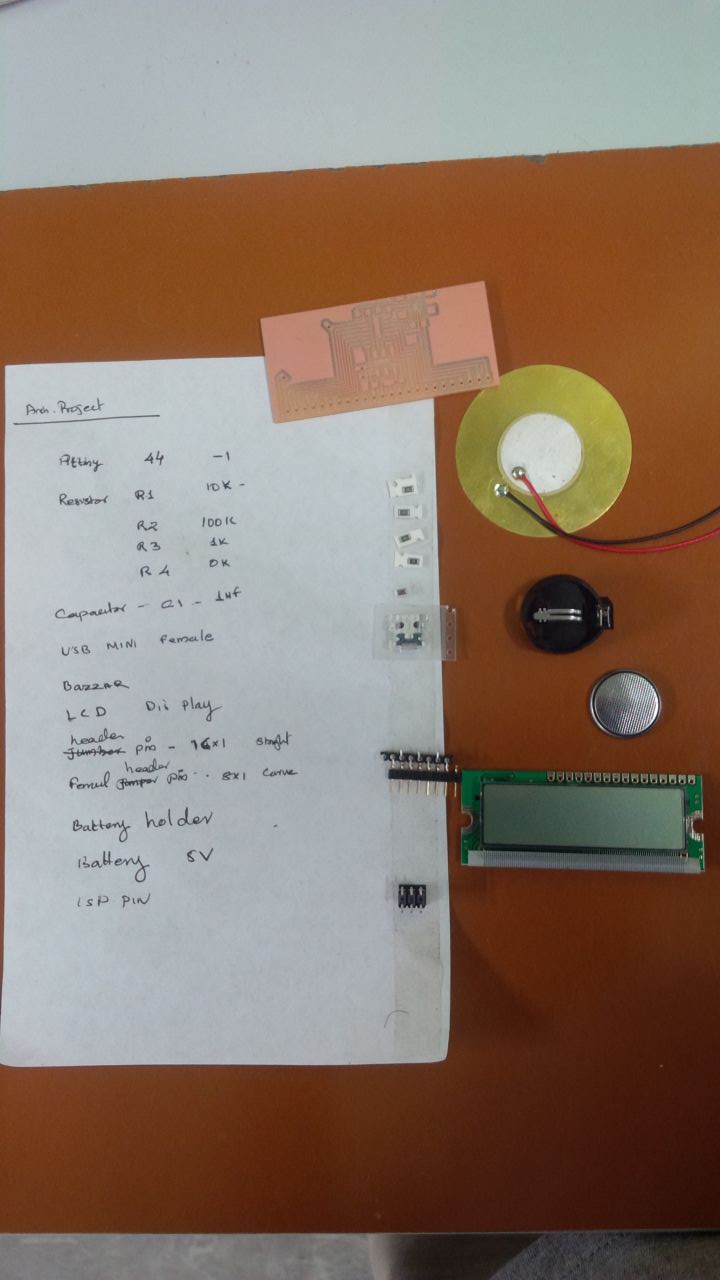 Arch. Project
Attiny 44 -1
Resistor R1 10K -
R2 100K
R3 1K
R4 0K
Capacitor - C1 - 1uf
USB MINI Female
Bazzar
LCD Display
header
Jumber pin - 16x1 straight
header
Femal Jumper pin - 8x1 curve
Battery holder
Battery 5V
ISP PIN